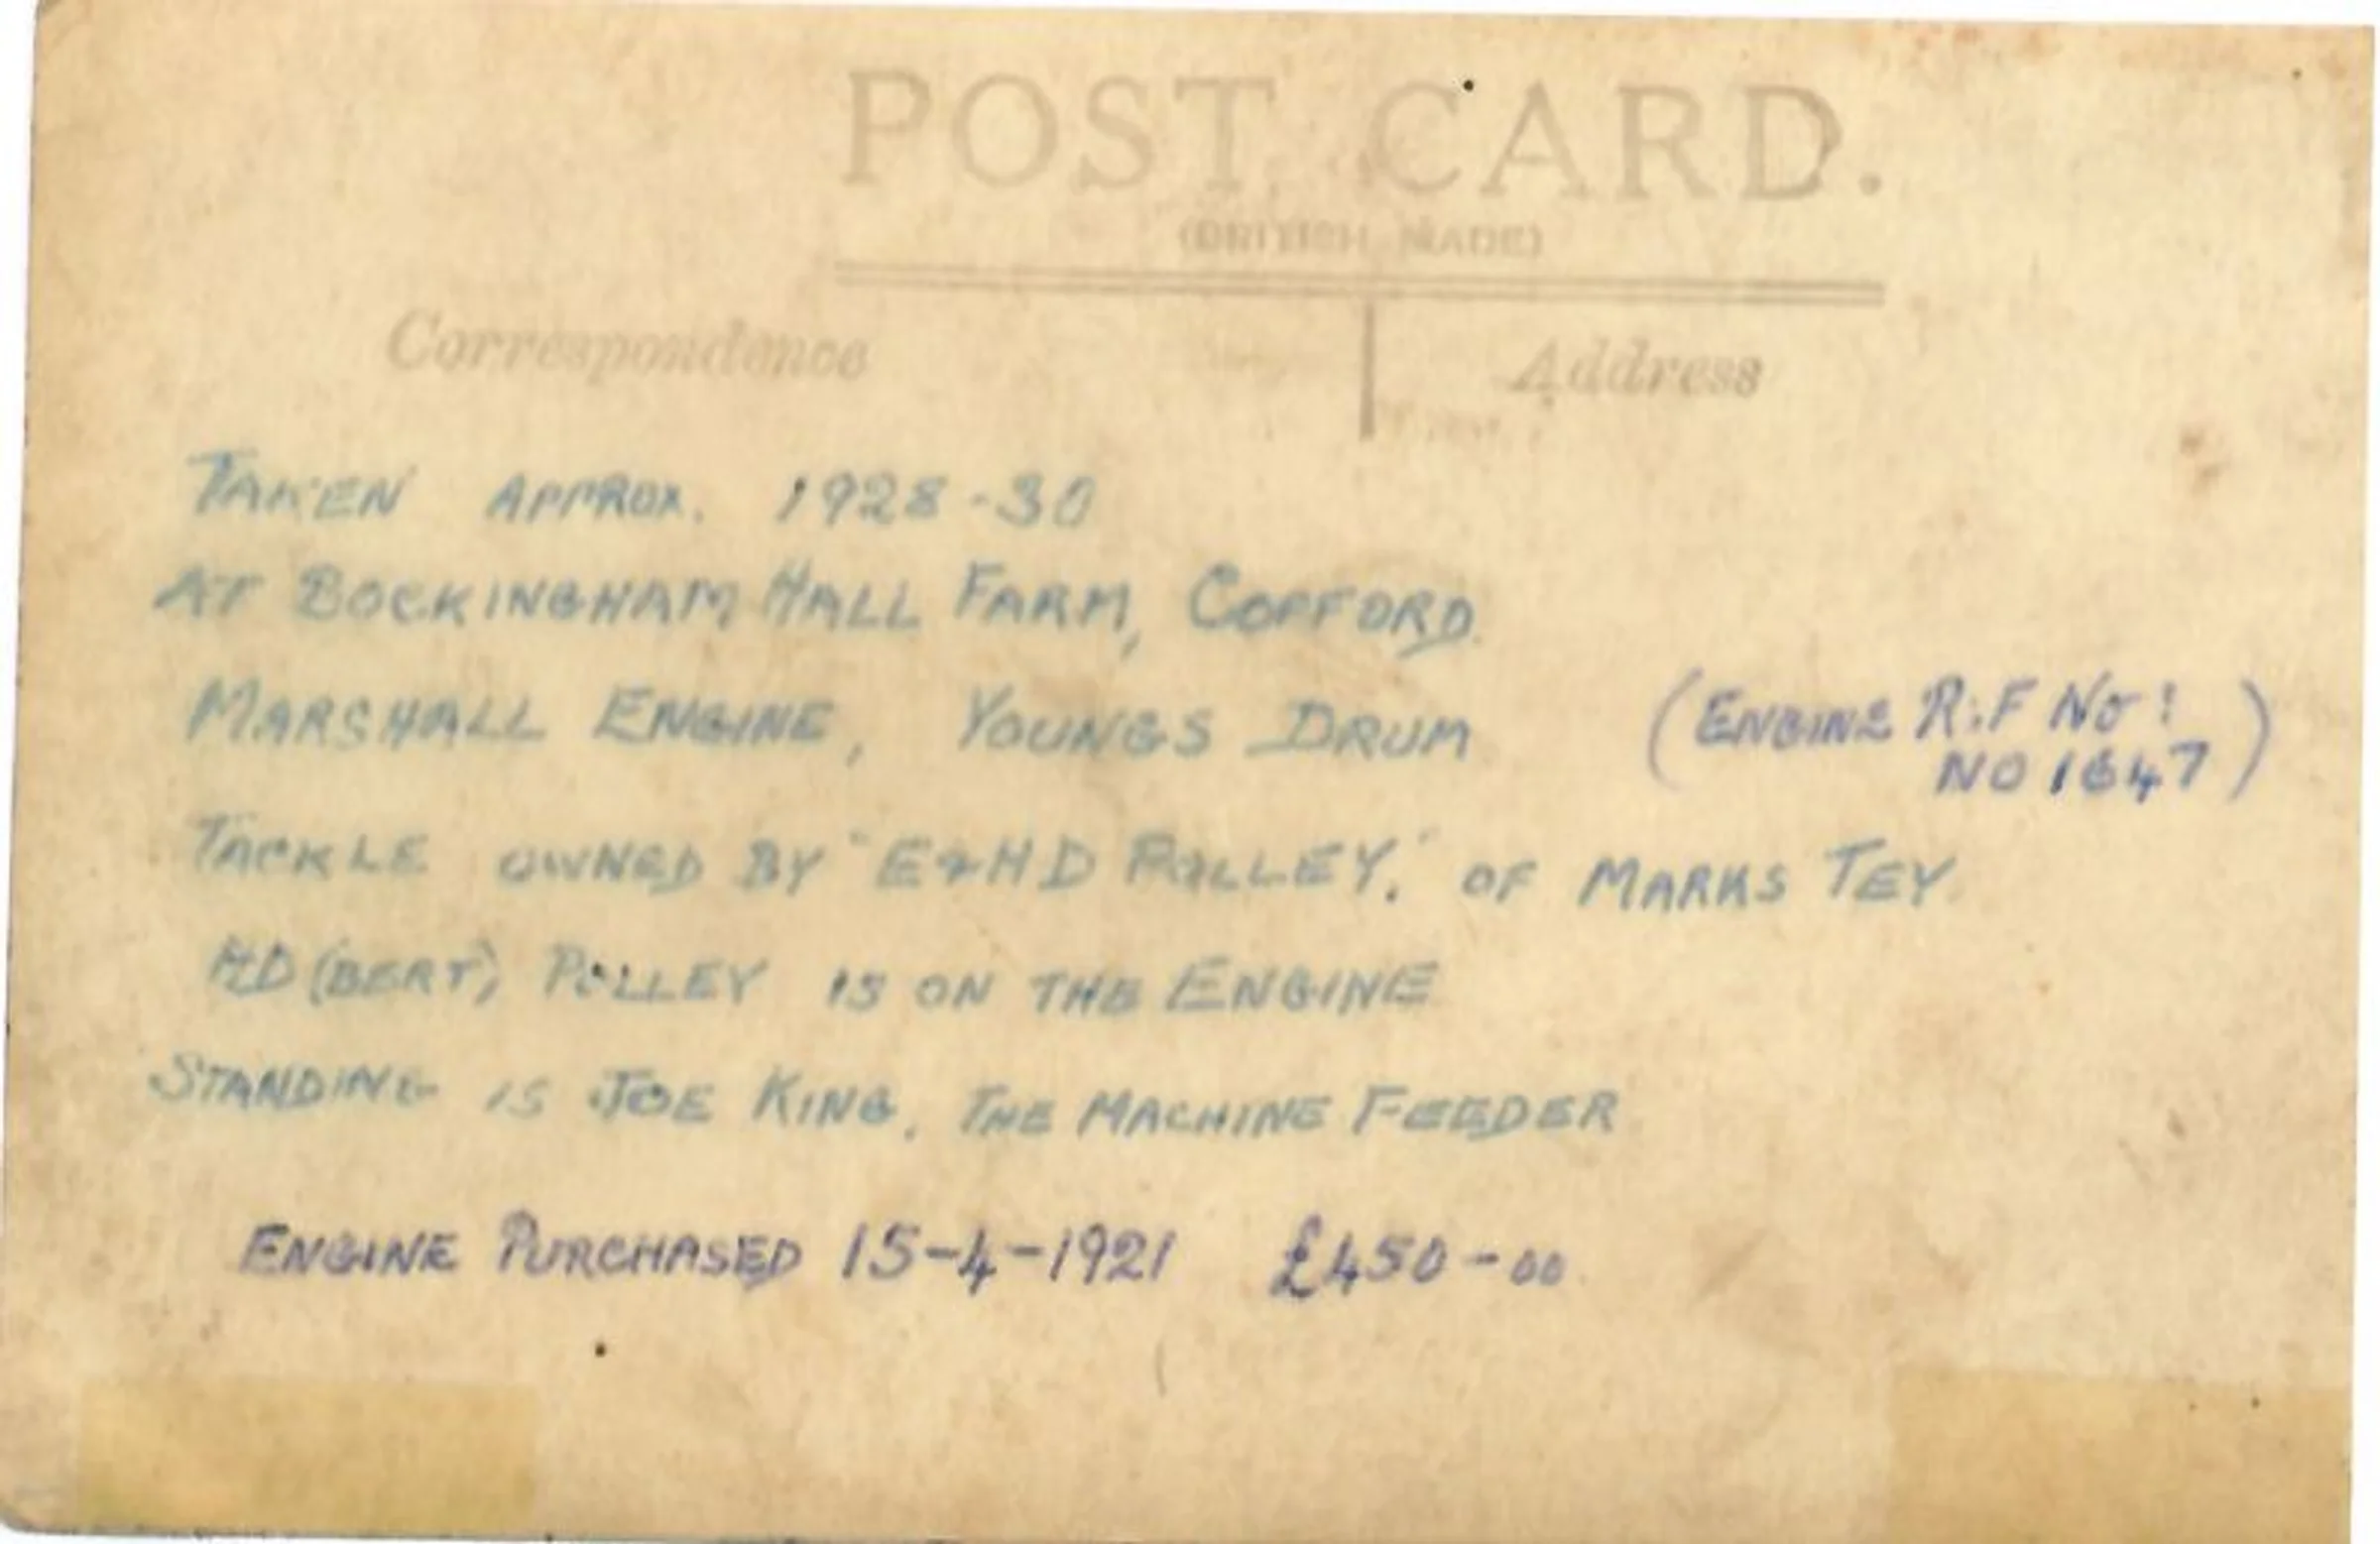 POST CARD.
(BRITISH MADE)
Correspondence
Address
TAKEN APPROX. 1928-30
AT BOCKINGHAM HALL FARM, COPFORD.
MARSHALL ENGINE, YOUNGS DRUM
(ENGINE R.F NO:
NO 1647)
TACKLE OWNED BY "E & H D POLLEY." OF MARKS TEY
HD (BERT) POLLEY IS ON THE ENGINE
STANDING IS JOE KING, THE MACHINE FEEDER
ENGINE PURCHASED 15-4-1921 £450-00